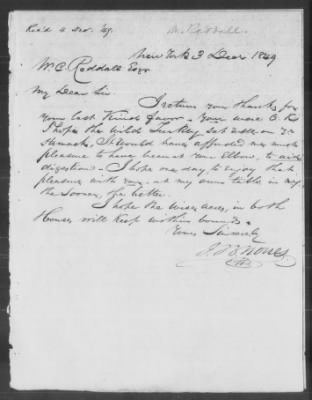 Rec'd 4 Dec. '49.
W. Reddall.
New York 3 Decr 1849
W. C. Reddall Esqr
My Dear Sir.
I return you thanks for
your last Kind favor - you were O. K.
I hope the wild turkey sat well on yr
stomach, it would have afforded me much
pleasure to have been at your Elbow, to aid
digestion. - I hope one day, to enjoy that
pleasure with you, at my own table in
the Sooner, the better.
I hope the wise acres, in both
Houses will Keep within bounds. -
Yours Sincerely